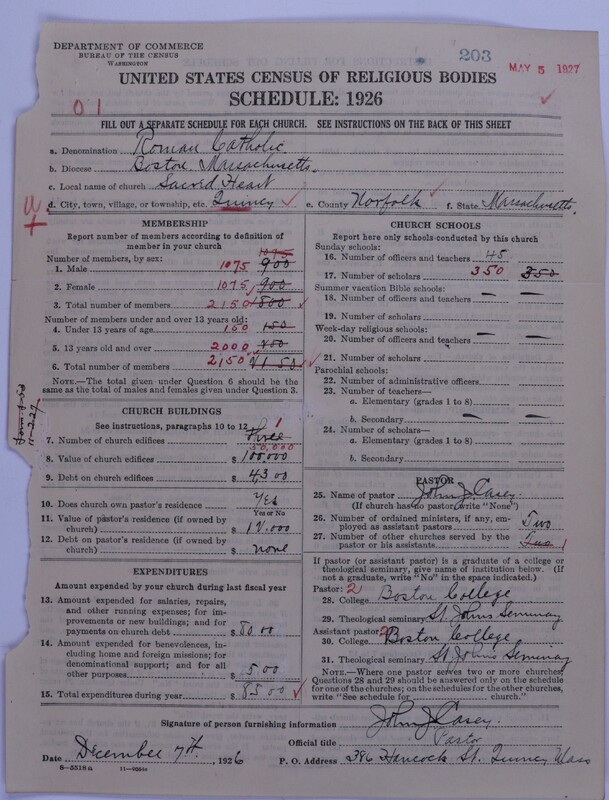 DEPARTMENT OF COMMERCE
BUREAU OF THE CENSUS
WASHINGTON
203
MAY 5 1927
UNITED STATES CENSUS OF RELIGIOUS BODIES
SCHEDULE: 1926
01
FILL OUT A SEPARATE SCHEDULE FOR EACH CHURCH. SEE INSTRUCTIONS ON THE BACK OF THIS SHEET
a. Denomination Roman Catholic
b. Diocese Boston Massachusetts
c. Local name of church Sacred Heart
d. City, town, village, or township, etc. Quincy e. County Norfolk f. State Massachusetts
MEMBERSHIP
Report number of members according to definition of member in your church
Number of members, by sex:
1075
1. Male 1075 900
2. Female 1075 900
3. Total number of members 2150 1800
Number of members under and over 13 years old:
4. Under 13 years of age 150 150
5. 13 years old and over 2000
6. Total number of members 2150
NOTE.—The total given under Question 6 should be the same as the total of males and females given under Question 3.
CHURCH BUILDINGS
See instructions, paragraphs 10 to 12
7. Number of church edifices Three 1
50,000
8. Value of church edifices $ 100,000
9. Debt on church edifices $ 4300
10. Does church own pastor's residence Yes
Yes or No
11. Value of pastor's residence (if owned by church) $ 12,000
12. Debt on pastor's residence (if owned by church) $ none
EXPENDITURES
Amount expended by your church during last fiscal year
13. Amount expended for salaries, repairs, and other running expenses; for improvements or new buildings; and for payments on church debt $ 8000
14. Amount expended for benevolences, including home and foreign missions; for denominational support; and for all other purposes $ 500
15. Total expenditures during year $ 8500
CHURCH SCHOOLS
Report here only schools conducted by this church
Sunday schools:
16. Number of officers and teachers 45
17. Number of scholars 350 350
Summer vacation Bible schools:
18. Number of officers and teachers
19. Number of scholars
Week-day religious schools:
20. Number of officers and teachers
21. Number of scholars
Parochial schools:
22. Number of administrative officers
23. Number of teachers—
a. Elementary (grades 1 to 8)
b. Secondary
24. Number of scholars—
a. Elementary (grades 1 to 8)
b. Secondary
PASTOR
25. Name of pastor John J Casey
(If church has no pastor, write "None")
26. Number of ordained ministers, if any, employed as assistant pastors Two
27. Number of other churches served by the pastor or his assistants Two 1
If pastor (or assistant pastor) is a graduate of a college or theological seminary, give name of institution below. (If not a graduate, write "No" in the space indicated.)
Pastor: 2
28. College Boston College
29. Theological seminary St Johns Seminary
Assistant pastor: 2
30. College Boston College
31. Theological seminary St Johns Seminary
NOTE.—Where one pastor serves two or more churches, Questions 28 and 29 should be answered only on the schedule for one of the churches; on the schedules for the other churches, write "See schedule for church."
Signature of person furnishing information John J Casey
Official title Pastor
Date December 7th, 1926 P. O. Address 386 Hancock St. Quincy Mass
8-5518a